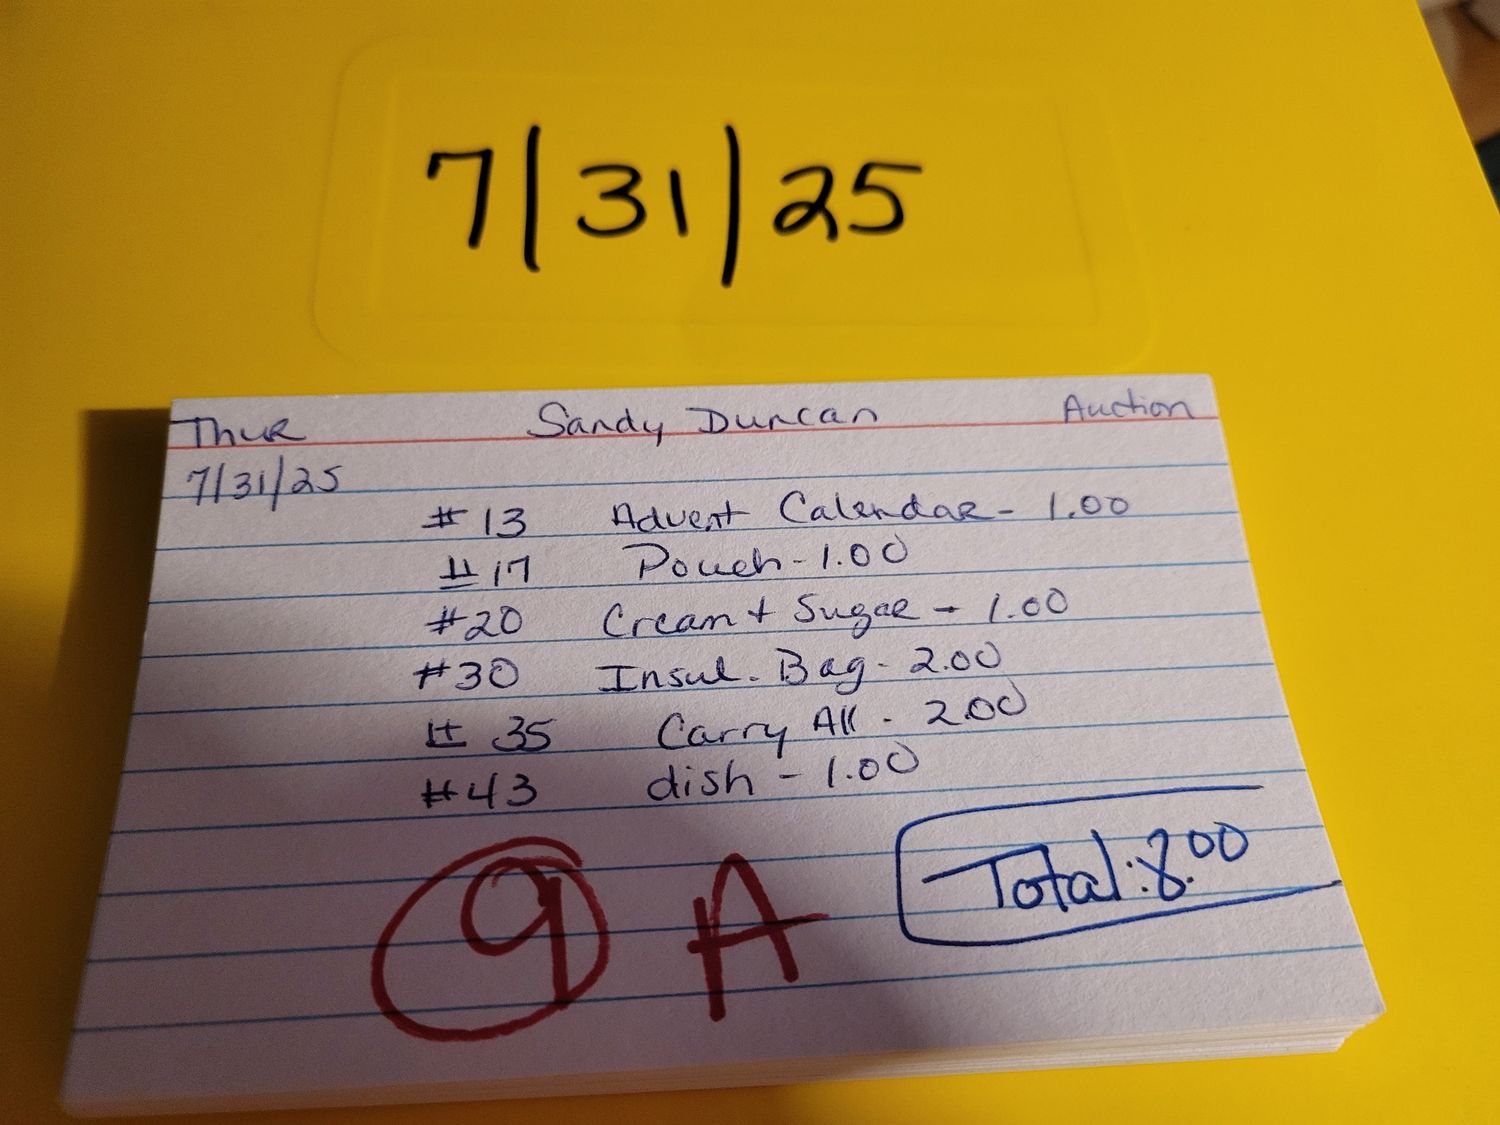 7/31/25
Thur Sandy Duncan Auction
7/31/25
#13 Advent Calendar - 1.00
#17 Pouch - 1.00
#20 Cream + Sugar - 1.00
#30 Insul. Bag - 2.00
#35 Carry All - 2.00
#43 dish - 1.00
Total: 8.00
9 A